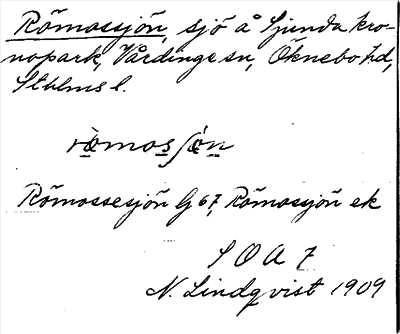 Römossjön, sjö å Ljunda kro-
nopark, Vårdinge sn, Öknebo hd,
Sthlms l.
ròmosʃǿn
Römossesjön G 67, Römossjön ek
S O A 7
N. Lindqvist 1909